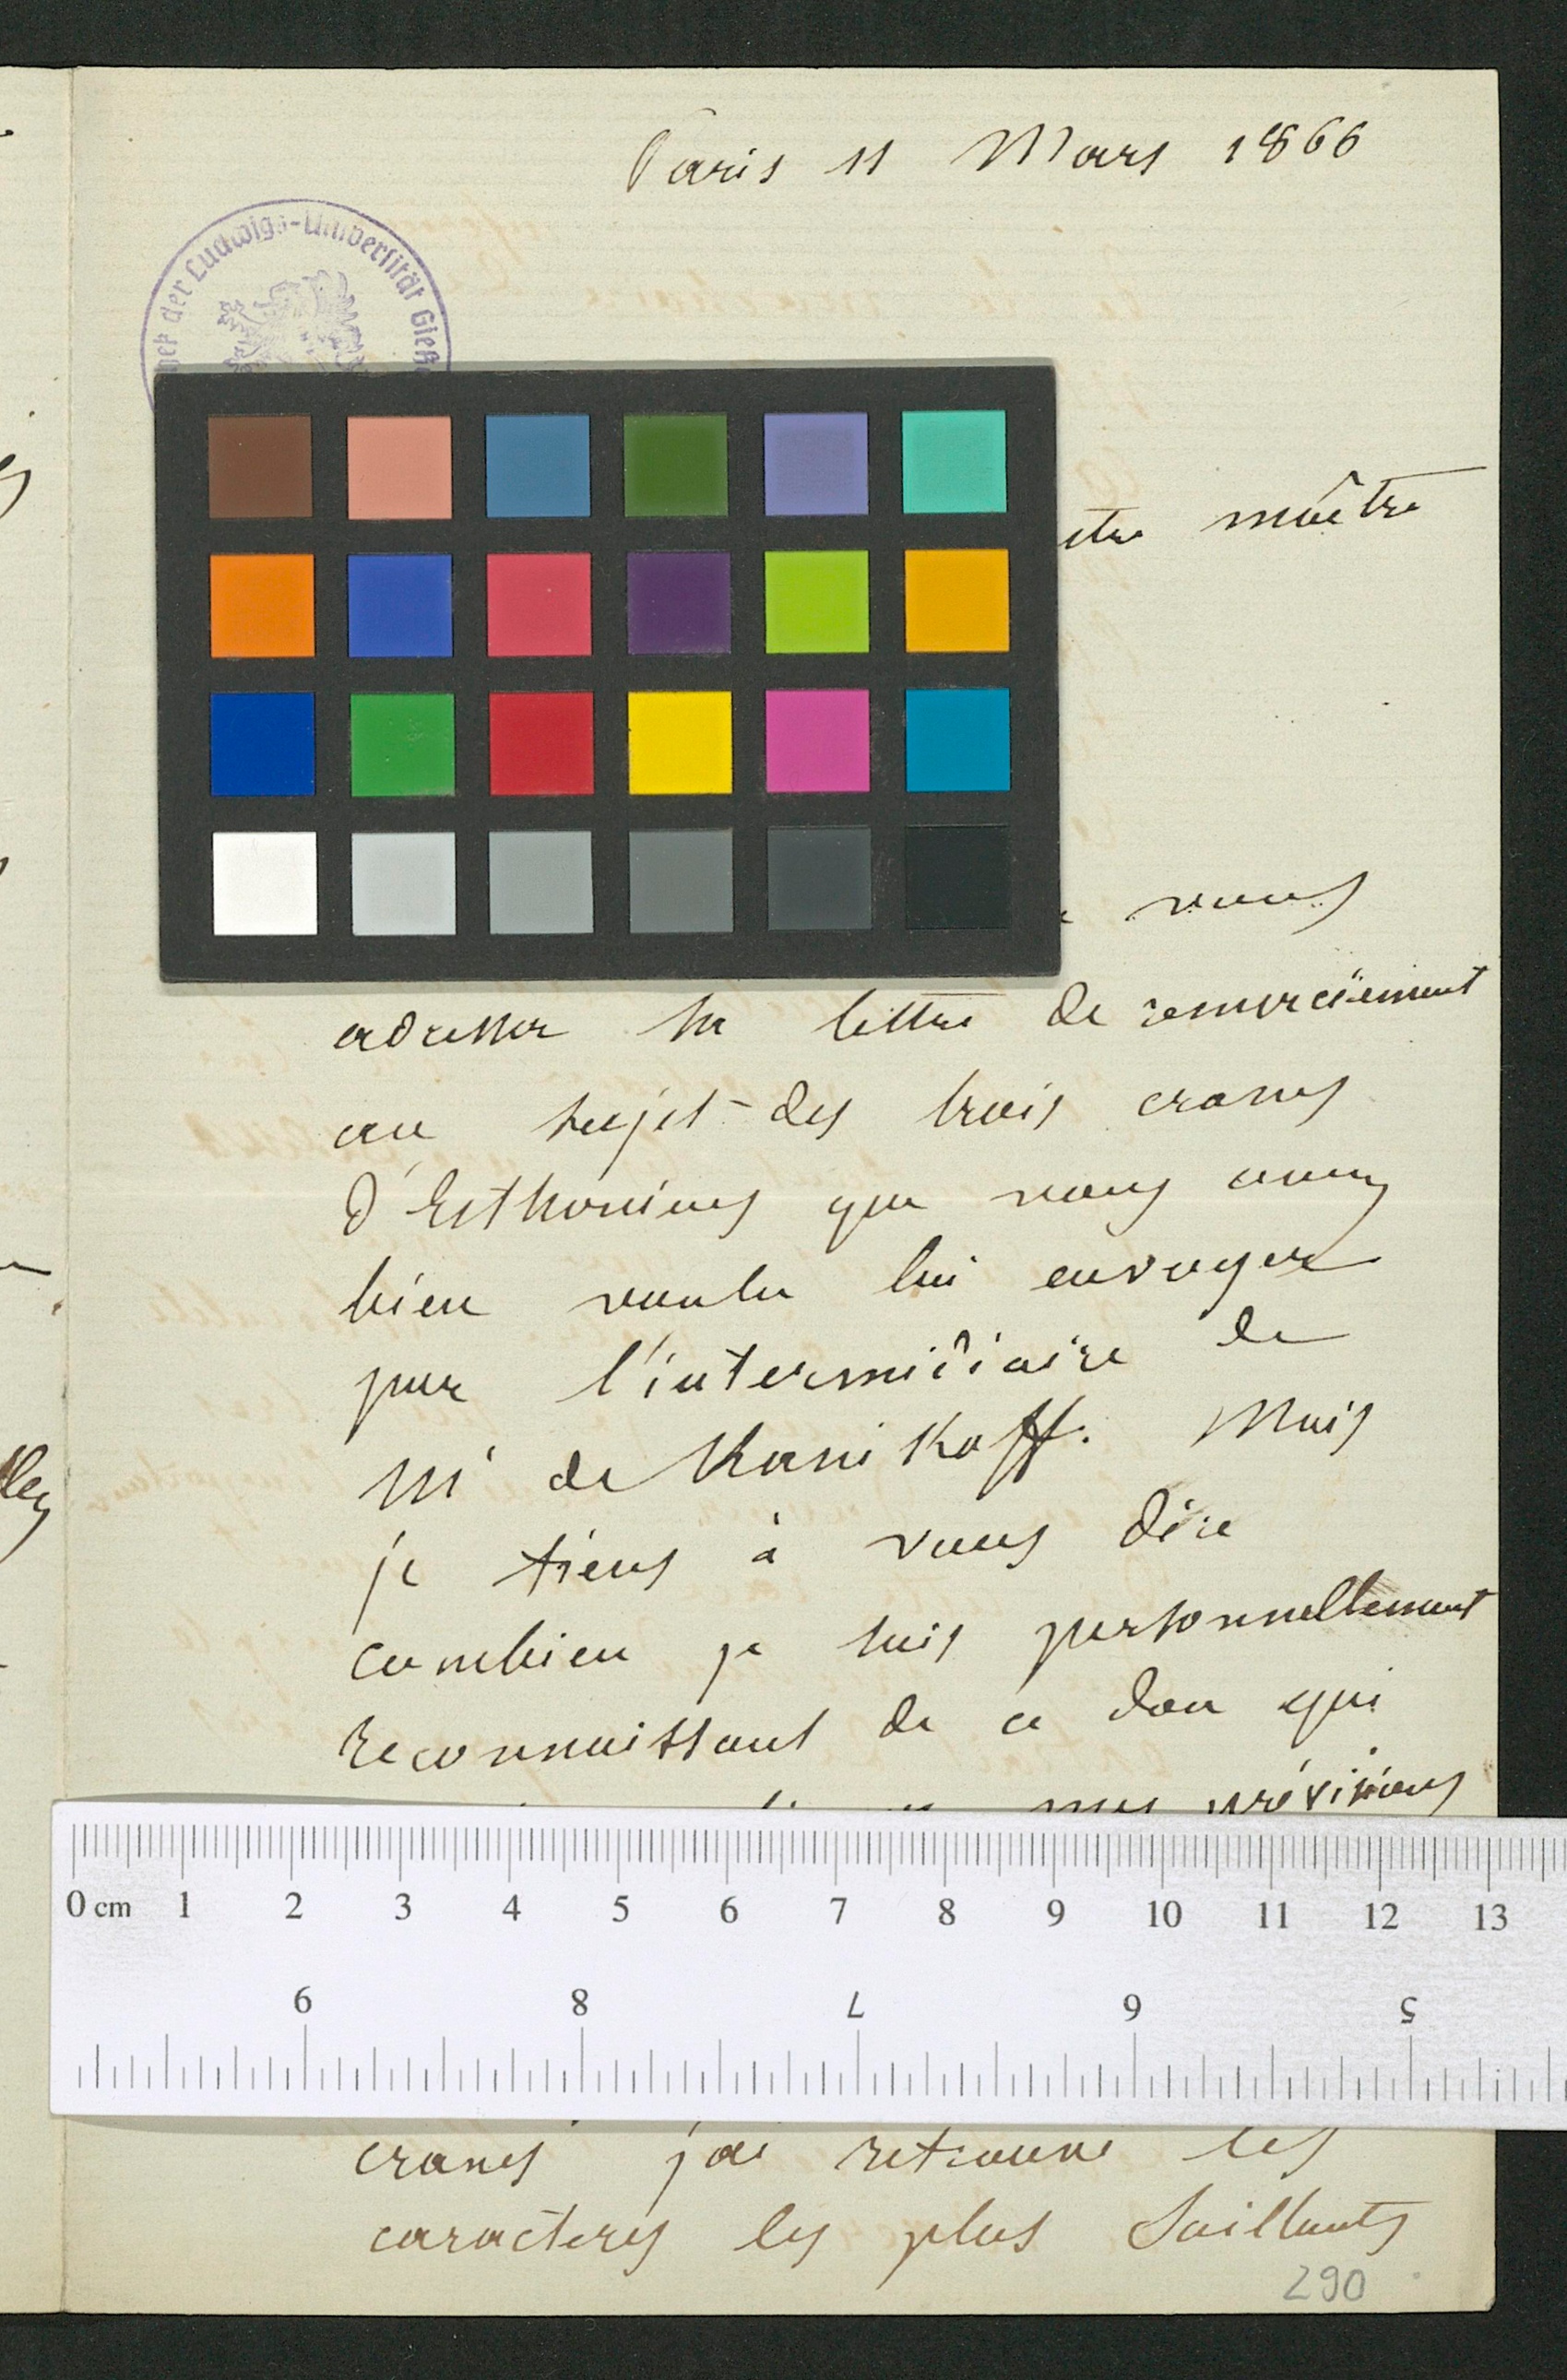 Paris 11 Mars 1866
der Ludwigs-Universität Gieß
maître
vous
adresser sa lettre de remerciement
au sujet des trois cranes
d'Esthoniens que vous avez
bien voulu lui envoyer
par l'intermédiaire de
Mr de Khanikoff. Mais
je tiens à vous dire
combien je suis personnellement
reconnaissant de ce don qui
mes prévisions
0 cm 1 2 3 4 5 6 7 8 9 10 11 12 13
9 8 7 6 5
cranes j'ai retrouvé les
caractères les plus Saillants
290